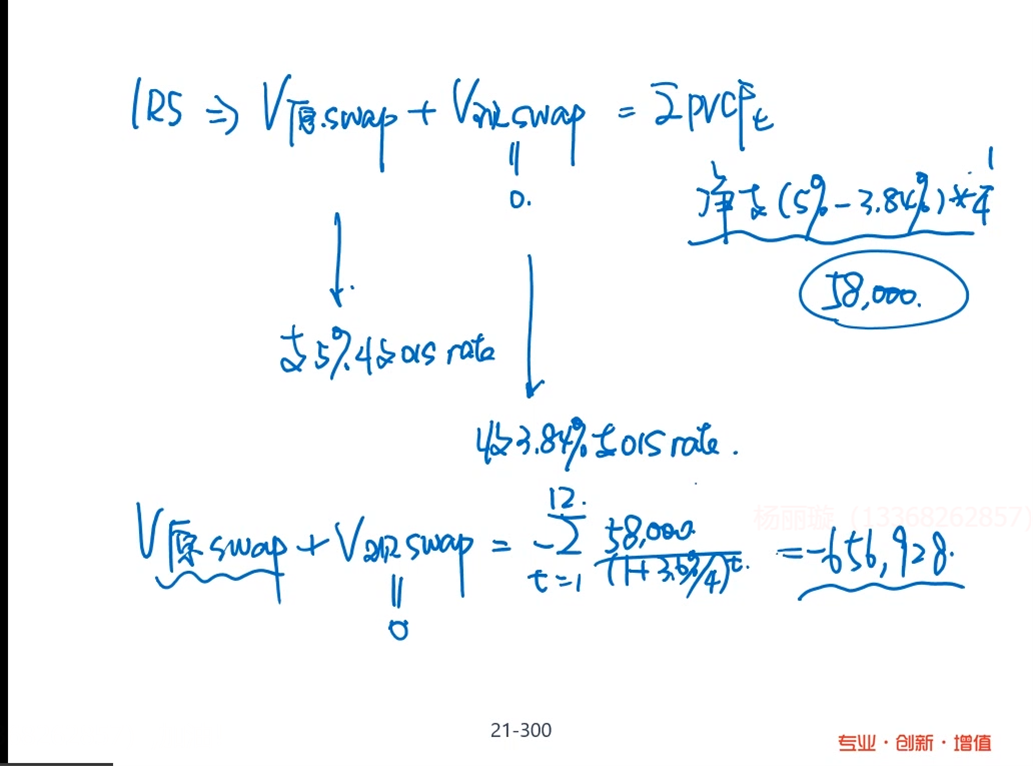 IRS ⇒ V原.swap + V現swap = ΣPVCFt
||
0.
净支(5% - 3.84%)*1/4
58,000.
支5%.收ois rate
收3.84%支OIS rate.
V原swap + V现swap = -Σ(t=1, 12.) 58,000 / (1+3.6%/4)^t. = -656,928.
||
0
杨丽璇 (13368262857)
21-300
专业·创新·增值